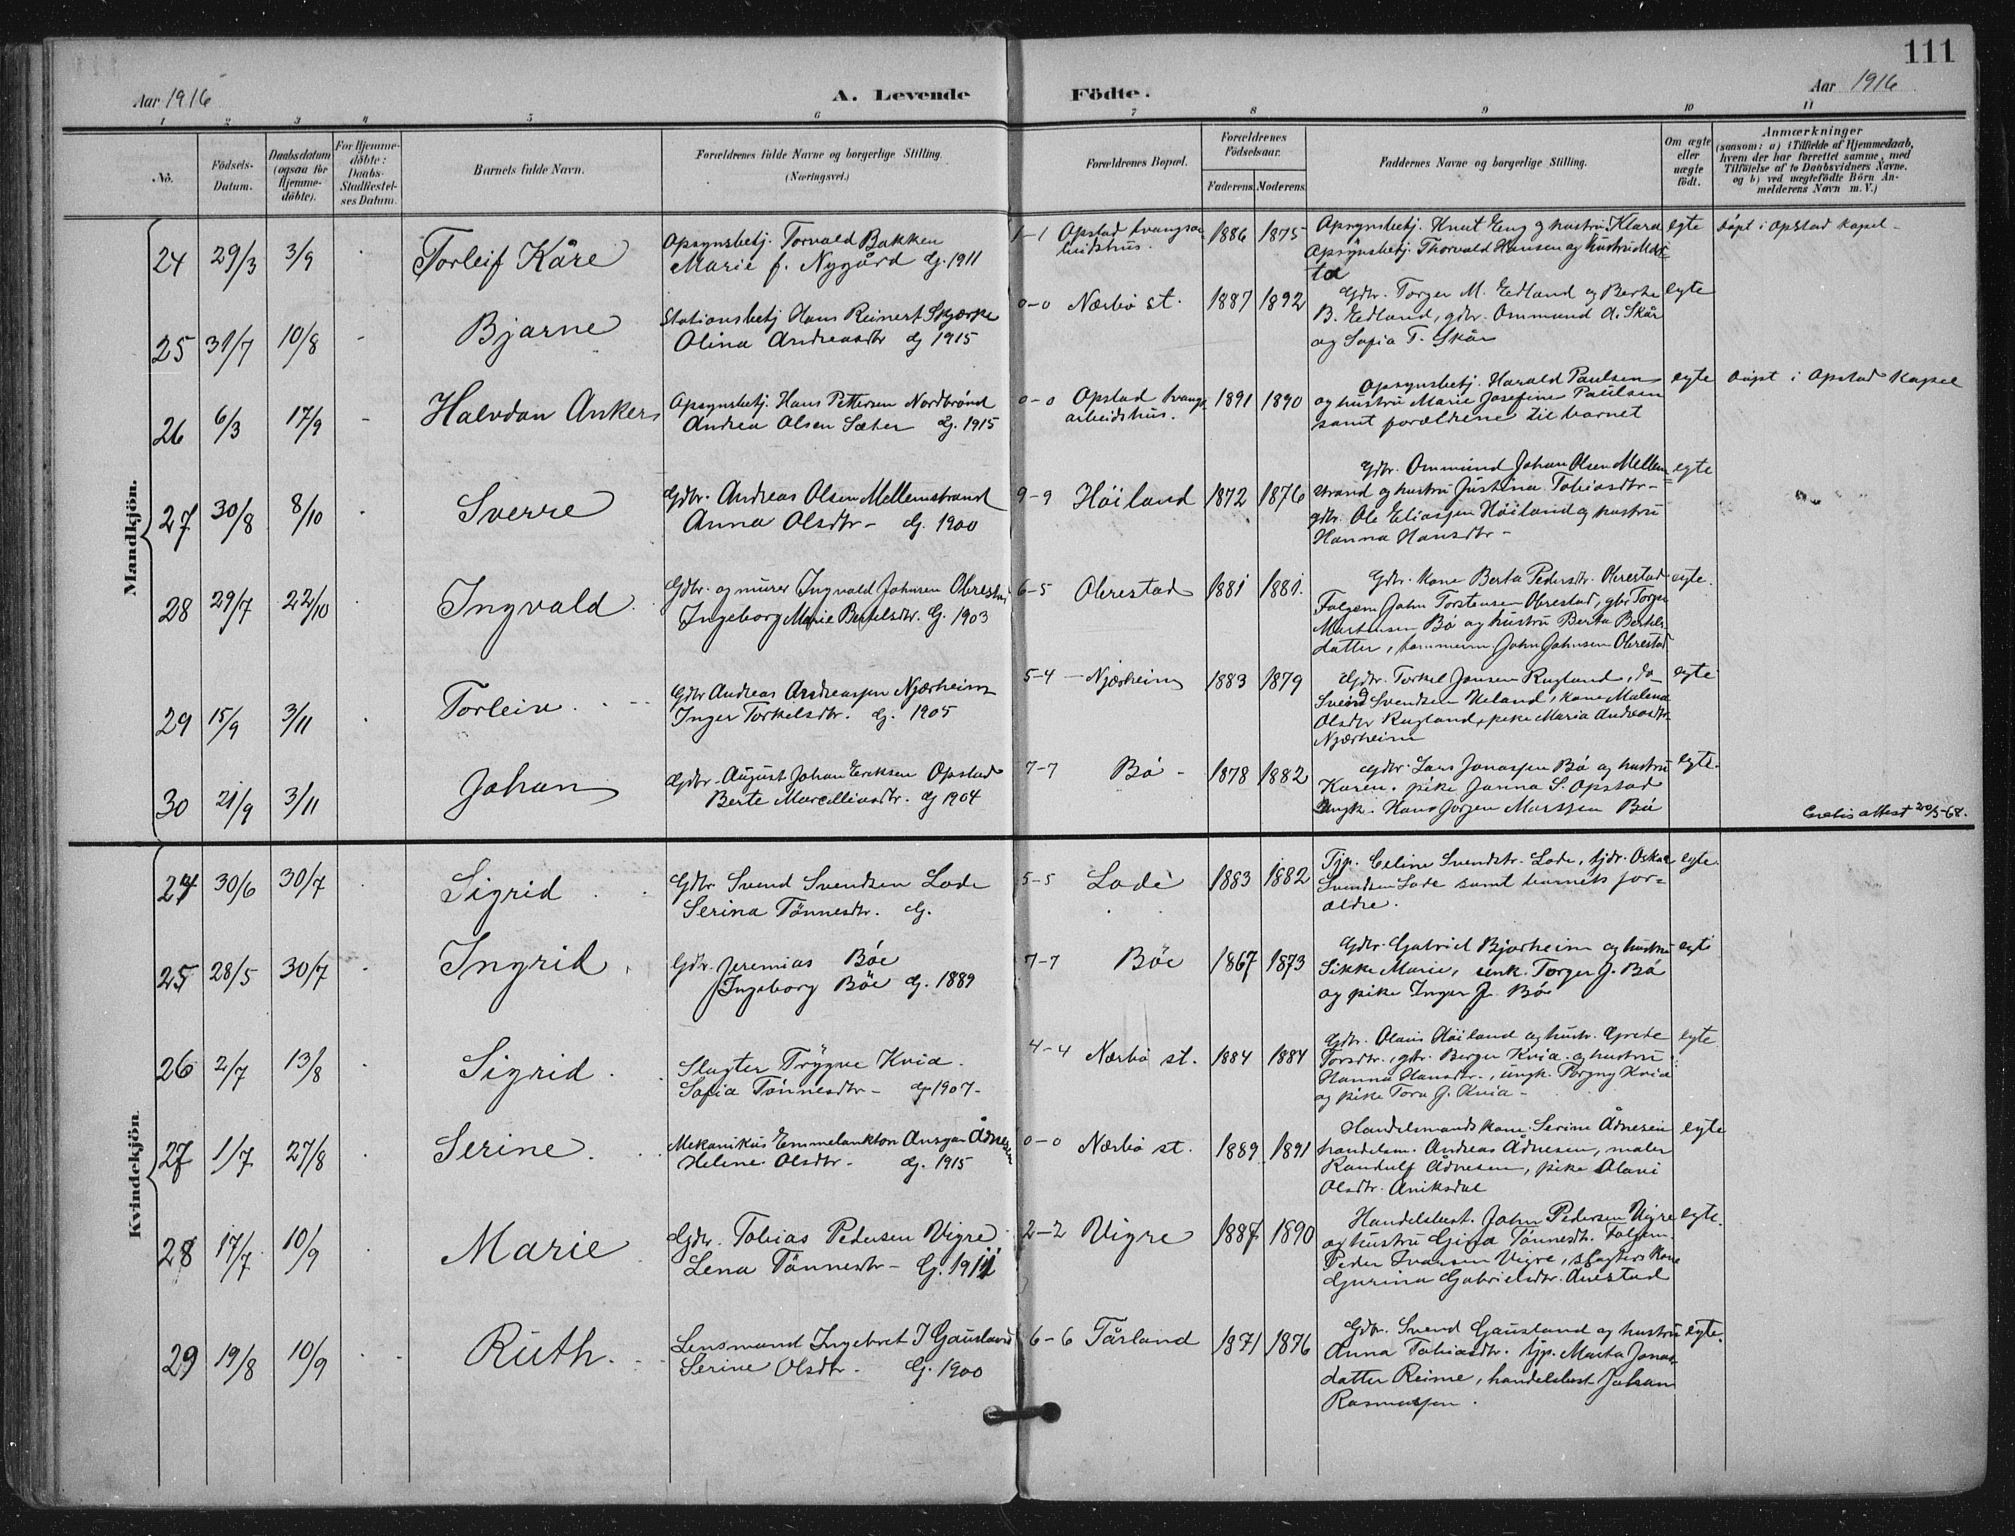 111
Aar 1916
A. Levende
Födte.
Aar 1916
1 2 3 4 5 6 7 8 9 10 11
No.
Födsels-Datum.
Daabsdatum (ogsaa for Hjemme-döbte).
For Hjemme-döbte: Daabs-Stadfæstel-ses Datum.
Barnets fulde Navn.
Forældrenes fulde Navne og borgerlige Stilling. (Næringsvei.)
Forældrenes Bopæl.
Forældrenes Födselsaar.
Faderens. Moderens.
Faddernes Navne og borgerlige Stilling.
Om ægte eller uægte födt.
Anmærkninger
(saasom: a) i Tilfælde af Hjemmedaab, hvem der har forrettet samme, med Tilföielse af to Daabsvidners Navne. og b) ved uægtefödte Börn An-melderens Navn m. V.)
Mandkjön.
24 29/3 3/9 Torleif Kåre
Opsynsbetj. Torvald Bakken
Marie f. Nygård G. 1911
1-1 Opstad tvangsar
beidshus.
1886 1875
Opsynsbetj. Knut Eng og hustru Klara
Opsynsbetj. Thorvald Hansen og hustru
egte
døpt i Opstad kapel-
25 31/7 10/8 - Bjarne
Stationsbetj Hans Reinert Skjærpe
Olina Andreasdtr G 1915
0-0 Nærbø st. 1887 1892
Gdbr. Torger M. Edland og Berte
B. Edland, gdbr. Ommund A. Skår
og Sofia T. Skår
egte
26 6/3 17/9 - Halvdan Anker
Opsynsbetj. Hans Pettersen Nordbrønd
Andrea Olsen Sæther G. 1915
0-0 Opstad tvangs
arbeidshus.
1891 1890
Opsynsbetj. Harald Paulsen
og hustru Marie Josefine Paulsen
samt forældrene til barnet
egte
døpt i Opstad Kapel
27 30/8 8/10 Sverre
Gdbr. Andreas Olsen Mellemstrand
Anna Olsdtr - G. 1900
9-9 Høiland 1872 1876
Gdbr. Ommund Johan Olsen Mellem
strand og hustru Justina Tobiasdtr-
gdbr. Ole Eliassen Høiland og hustru
Hanna Hansdtr-
egte
28 29/7 22/10 Ingvald
Gdbr. og murer Ingvald Johnsen Obrestad
Ingeborg Marie Bertelsdtr. G. 1903
6-5 Obrestad 1881 1881.
Gdbr. kone Berta Pedersdtr. Obrestad
Folgem John Torstensen Obrestad, gbr Torger
Martensen Bø og hustru Berta Bertels
datter, tømmerm John Johnsen Obrestad
egte.
29 15/9 3/11 Torleiv
Gdbr Andreas Andreassen Njærheim
Inger Torkelsdtr. G. 1905
5-4 Njærheim 1883 1879
Gdbr. Torkel Jonsen Rugland, do
Sveind Svendsen Ueland, kone Malena
Olsdtr Rugland, pike Maria Andreasdtr
Njærheim
egte
30 21/9 3/11 Johan
Gdbr. August Johan Eriksen Opstad
Berte Marcelliusdtr. G 1904
7-7 Bø - 1878 1882
Gdbr Lars Jonassen Bø og hustru
Karen. pike Janna S. Opstad
Ungk. Hans Jørgen Marssen Bø
egte.
attest 20/5-68.
Kvindekjön.
24 30/6 30/7 Sigrid
Gdbr Svend Svendsen Lode
Serina Tönnesdtr. G.
5-5 Lode 1883 1882
Tjp. Celine Svendstr. Lode, tjdr. Oskar
Svendsen Lode samt barnets for-
ældre.
egte.
25 28/5 30/7 Ingrid
Gdbr. Jeremias Bøe
Ingeborg Bøe G. 1889
7-7 Bøe 1867 1873
Gdbr. Gabriel Bjorheim og hustru
Sikke Marie, enk. Torger J. Bø
og pike Inger J. Bø
egte
26 2/7 13/8 Sigrid
Slagter Trygve Kvia
Sofia Tönnesdtr - G 1907-
4-4 Nærbø st. 1884 1884
Gdbr. Olaus Høiland og hustr. Grete
Torsdtr., gbr. Berger Kvia og hustru
Hanna Hansdtr-, ungk. Torgny Kvia
og pike Tora J. Kvia-
egte
27 1/7 27/8 Serine
Mekanikus Emmelankton Ansgar Ådnesen
Heline Olsdtr- G. 1915
0-0 Nærbø st. 1889 1891
Handelsmandskone Serine Ådnesen
handelsm. Andreas Ådnesen, maler
Randulf Ådnesen, pike Olavi
Olsdtr. Aniksdal
egte
28 17/7 10/9 Marie
Gdbr. Tobias Pedersen Vigre
Lena Tönnesdtr- G. 1911
2-2 Vigre 1887 1890
Handelsbest. John Pedersen Vigre
og hustru Gina Tönnesdtr. Folgem.
Peder Ivarsen Vigre, slagters kone
Gurina Gabrielsdtr. Auestad
egte.
29 19/8 10/9 Ruth.
Lensmand Ingebret I Gausland
Serine Olsdtr- G. 1900
6-6 Tårland 1871 1876
Gdbr. Svend Gausland og hustru
Anna Tobiasdtr. tjp. Marta Jonas
datter Reime, handelsbest Johan
Rasmussen.
egte.